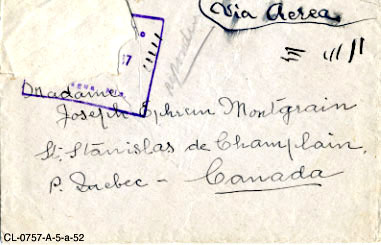 Via Aerea
Madame
Joseph Ephrem Montgrain
St. Stanislas de Champlain.
P. Quebec - Canada
CL-0757-A-5-a-52